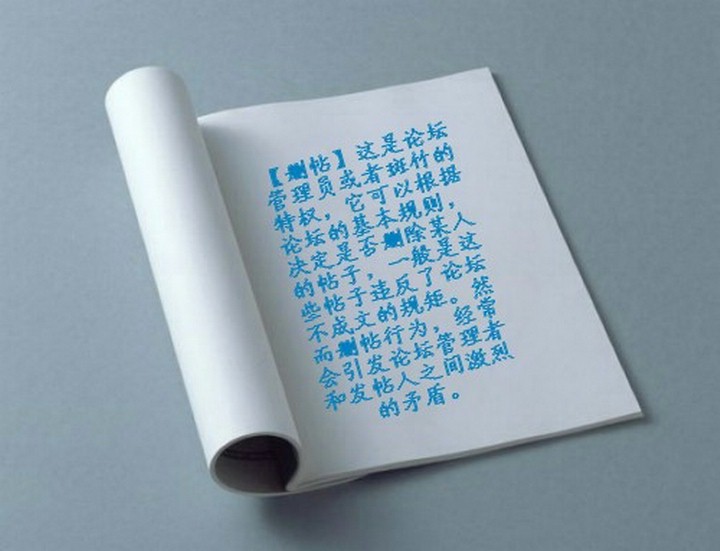 【删帖】这是论坛
管理员或者斑竹的
特权，它可以根据
论坛的基本规则，
决定是否删除某人
的帖子，一般是这
些帖子违反了论坛
不成文的规矩。然
而删帖行为，经常
会引发论坛管理者
和发帖人之间激烈
的矛盾。